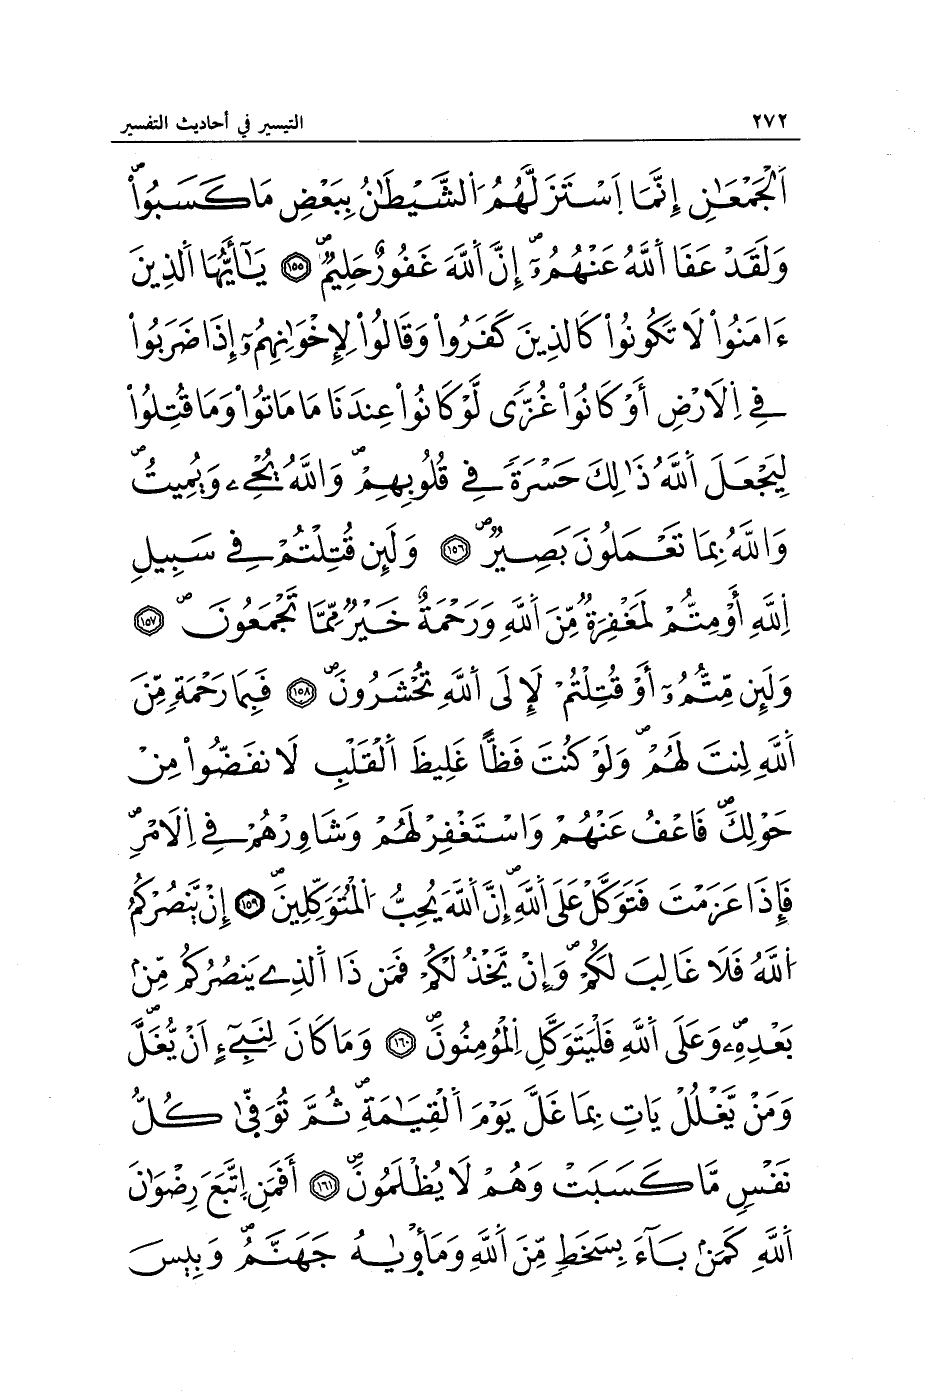 ٢٧٢ التيسير في أحاديث التفسير
اَ۬لْجَمْعَٰنِ إِنَّمَا اَ۪سْتَزَلَّهُمُ اُ۬لشَّيْطَٰنُ بِبَعْضِ مَا كَسَبُواْۖ
وَلَقَدْ عَفَا اَ۬للَّهُ عَنْهُمُۥٓۖ إِنَّ اَ۬للَّهَ غَفُورٌ حَلِيمٌۖ ١٥٥ يَٰٓأَيُّهَا اَ۬لذِينَ
ءَامَنُواْ لَا تَكُونُواْ كَالذِينَ كَفَرُواْ وَقَالُواْ لِإِخْوَٰنِهِمُۥٓ إِذَا ضَرَبُواْ
فِے اِ۬لَارْضِ أَوْ كَانُواْ غُزّيٗ لَّوْ كَانُواْ عِندَنَا مَا مَاتُواْ وَمَا قُتِلُواْ
لِيَجْعَلَ اَ۬للَّهُ ذَٰلِكَ حَسْرَةٗ فِے قُلُوبِهِمْۖ وَاللَّهُ يُحْيِۦ وَيُمِيتُۖ
وَاللَّهُ بِمَا تَعْمَلُونَ بَصِيرٌۖ ١٥٦ وَلَئِن قُتِلْتُمْ فِے سَبِيلِ
اِ۬للَّهِ أَوْ مِتُّمْ لَمَغْفِرَةٞ مِّنَ اَ۬للَّهِ وَرَحْمَةٌ خَيْرٞ مِّمَّا تَجْمَعُونَۖ ١٥٧
وَلَئِن مِّتُّمُۥٓ أَوْ قُتِلْتُمْ لَإِلَى اَ۬للَّهِ تُحْشَرُونَۖ ١٥٨ فَبِمَا رَحْمَةٖ مِّنَ
اَ۬للَّهِ لِنتَ لَهُمْۖ وَلَوْ كُنتَ فَظّاً غَلِيظَ اَ۬لْقَلْبِ لَانفَضُّواْ مِنْ
حَوْلِكَۖ فَاعْفُ عَنْهُمْ وَاسْتَغْفِرْ لَهُمْ وَشَاوِرْهُمْ فِے اِ۬لَامْرِۖ
فَإِذَا عَزَمْتَ فَتَوَكَّلْ عَلَى اَ۬للَّهِۖ إِنَّ اَ۬للَّهَ يُحِبُّ اُ۬لْمُتَوَكِّلِينَۖ ١٥٩ إِنْ يَّنصُرْكُمُ
اُ۬للَّهُ فَلَا غَالِبَ لَكُمْۖ وَإِنْ يَّخْذُلْكُمْ فَمَن ذَا اَ۬لذِے يَنصُرُكُم مِّنۢ
بَعْدِهِۦۖ وَعَلَى اَ۬للَّهِ فَلْيَتَوَكَّلِ اِ۬لْمُؤْمِنُونَۖ ١٦٠ وَمَا كَانَ لِنَبِےٓءٍ اَنْ يُّغَلَّۖ
وَمَنْ يَّغْلُلْ يَاتِ بِمَا غَلَّ يَوْمَ اَ۬لْقِيَٰمَةِۖ ثُمَّ تُوَفّيٰ كُلُّ
نَفْسٖ مَّا كَسَبَتْ وَهُمْ لَا يُظْلَمُونَۖ ١٦١ أَفَمَنِ اِ۪تَّبَعَ رِضْوَٰنَ
اَ۬للَّهِ كَمَنۢ بَآءَ بِسَخَطٖ مِّنَ اَ۬للَّهِ وَمَأْوٜيٰهُ جَهَنَّمُۖ وَبِيسَ